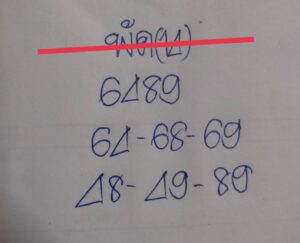 6489
64-68-69
48-49-89